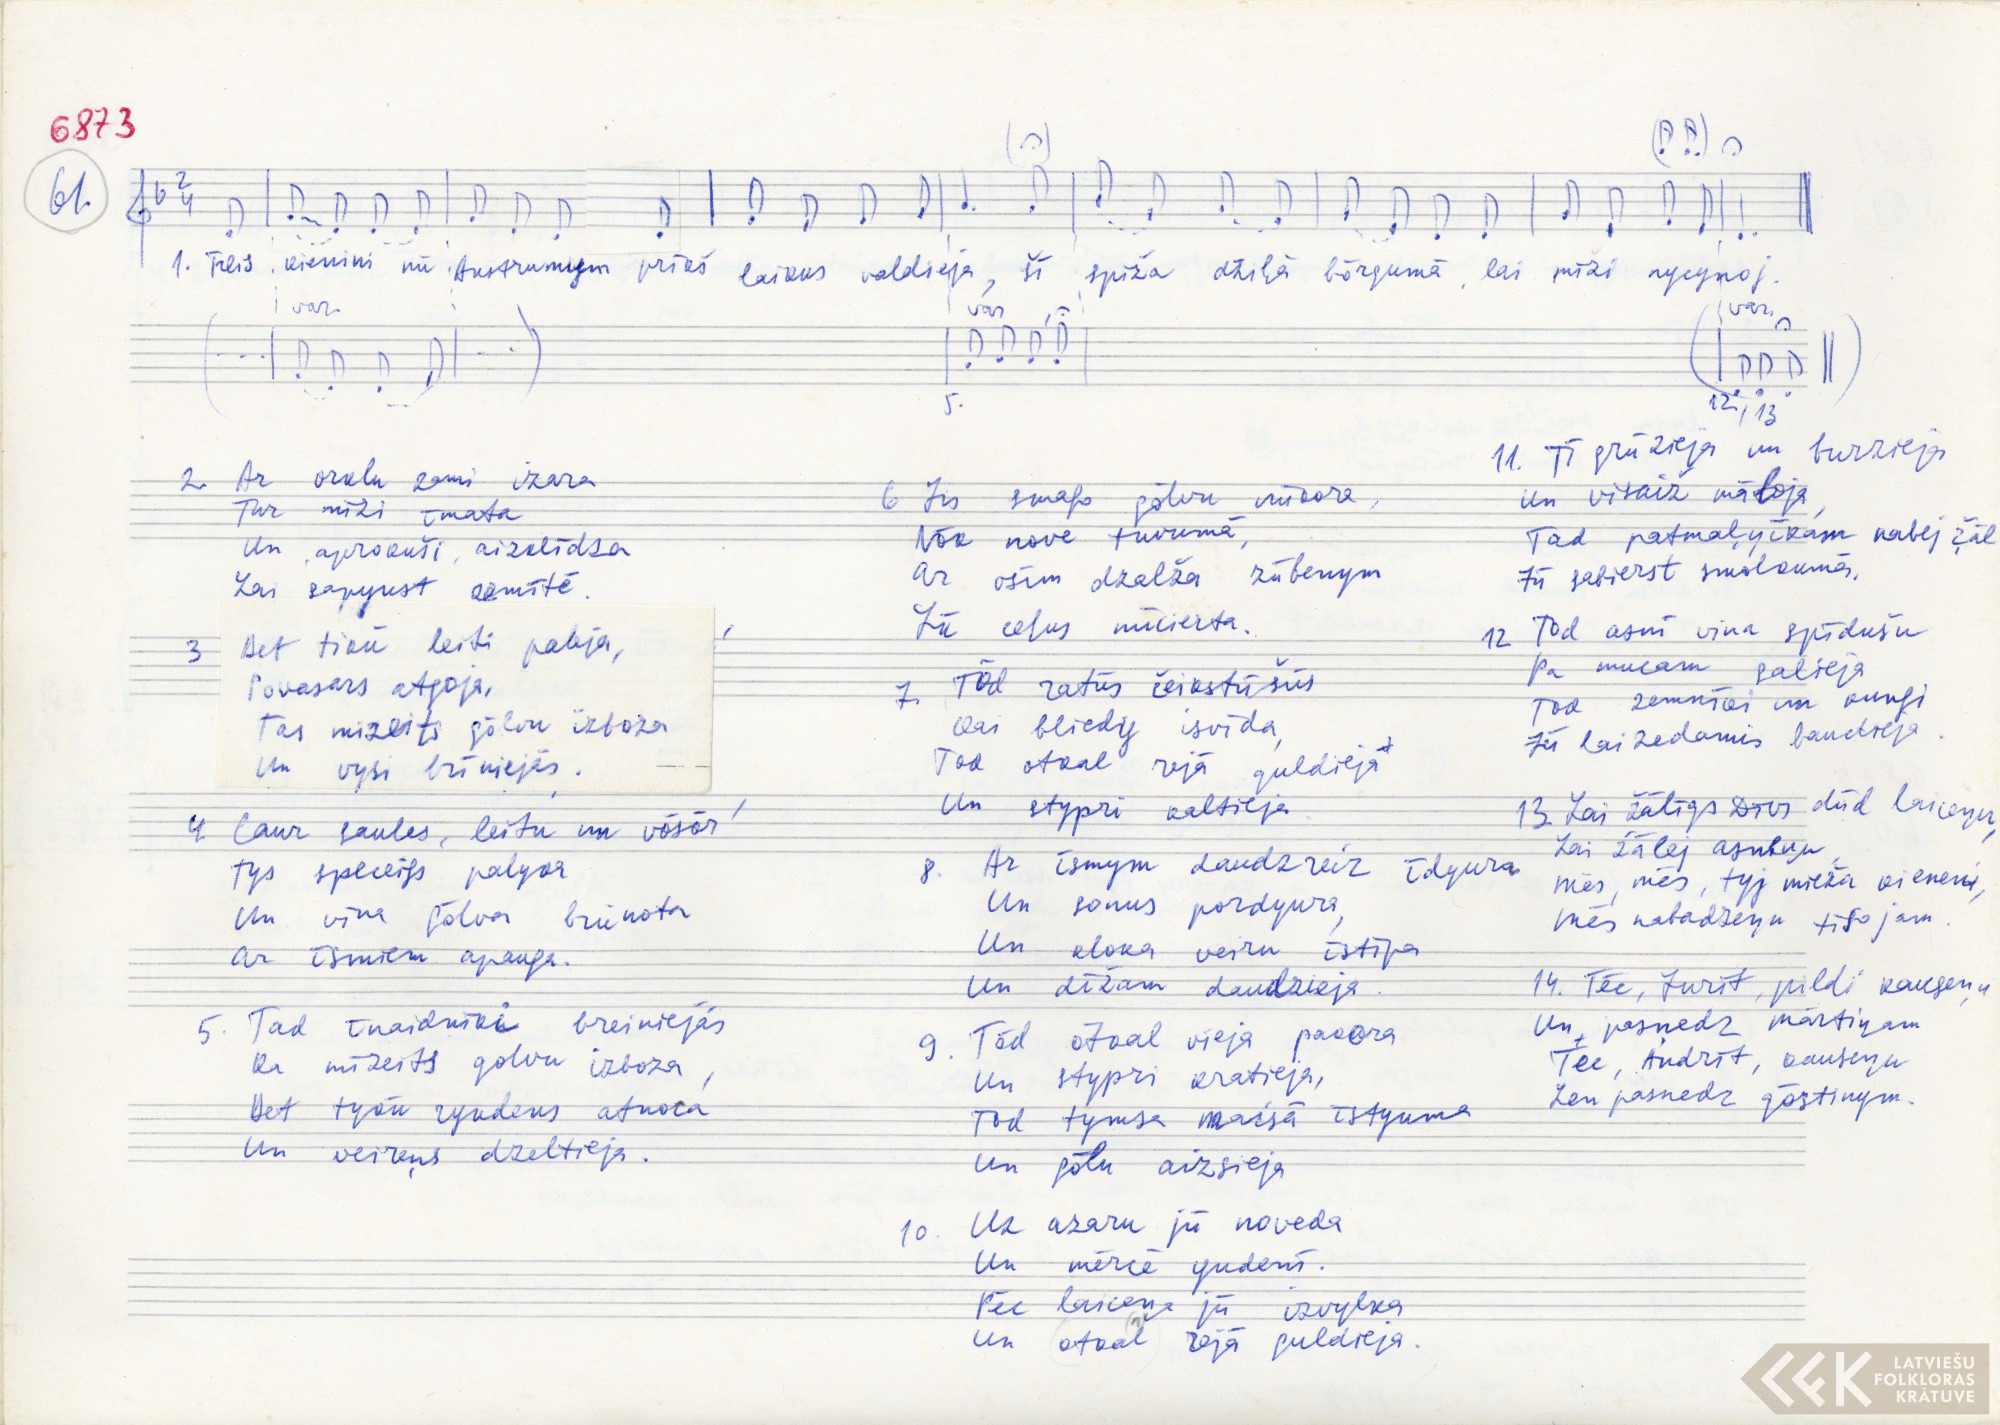 6873
61.
2/4
1. Treis kieniņi nū Austrumym prīkš laikus valdieja, šī spīža džiļā bōrgumā, lai mīži nycynoj.
var.
var
var.
5.
12, 13
2. Ar orklu zemi izara
Tur mīži īmata
Un aprokuši, aizslīdza
Lai sapyust zemītē.
3 Bet tikū leiti paleja,
Povasars atgoja,
Tas mizeits gōlvu izboza
Un vysi brīniejās.
4 Caur saules, leitu un vōsōr
Tys speceigs palyka
Un vīna gōlva brūnota
Ar īsmiem apauga.
5. Tad īnaidnīki breiniejās
Ka mīzeits golvu izboza,
Bet tyku rgudens atnoca
Un veireņs dzeltieja.
6 Jis smago gōlvu nūkora,
Nōk nove tuvumā,
Ar osim dzalža zūbenym
Jū ceļus nūcierta.
7. Tōd ratūs čeikstūšūs
Kai bliedy isvīda,
Tod otkal rejā guldieja
Un stypri kaltieja
8. Ar īsmym daudzreiz īdyura
Un sonus pordyura,
Un kloka veiru īstīpa
Un dīžam daudzieja.
9. Tōd otkal vieja pacora
Un stypri kratieja,
Tod tymsa maisā īstyuma
Un gōlu aizsieja
10. Uz azaru jū noveda
Un mērcē yudenī.
Pēc laiceņa jū izvylka
Un otkal rejā guldieja.
11. Tī grūzieja un burzieja
Un visaiž māloja,
Tad patmaļņīkam nabej žāl
Jū saberst smolkumā.
12 Tod asni vina spīdušu
Pa mucam salieja
Tod zemnīki un kungi
Jū laizedamis baudieja.
13. Lai žālīgs Divs dūd laiceņu,
Lai žālej asnteņu,
Mēs, mēs, tyj mieža kieneņi,
Mēs nabadzeņu tīsojam.
14. Tēc, Jurīt, pildi kauseņu
Un pasnedz Mārtiņam
Tēc, Andrīt, kauseņu
Len pasnedz gōstinym.
LATVIEŠU
FOLKLORAS
KRĀTUVE